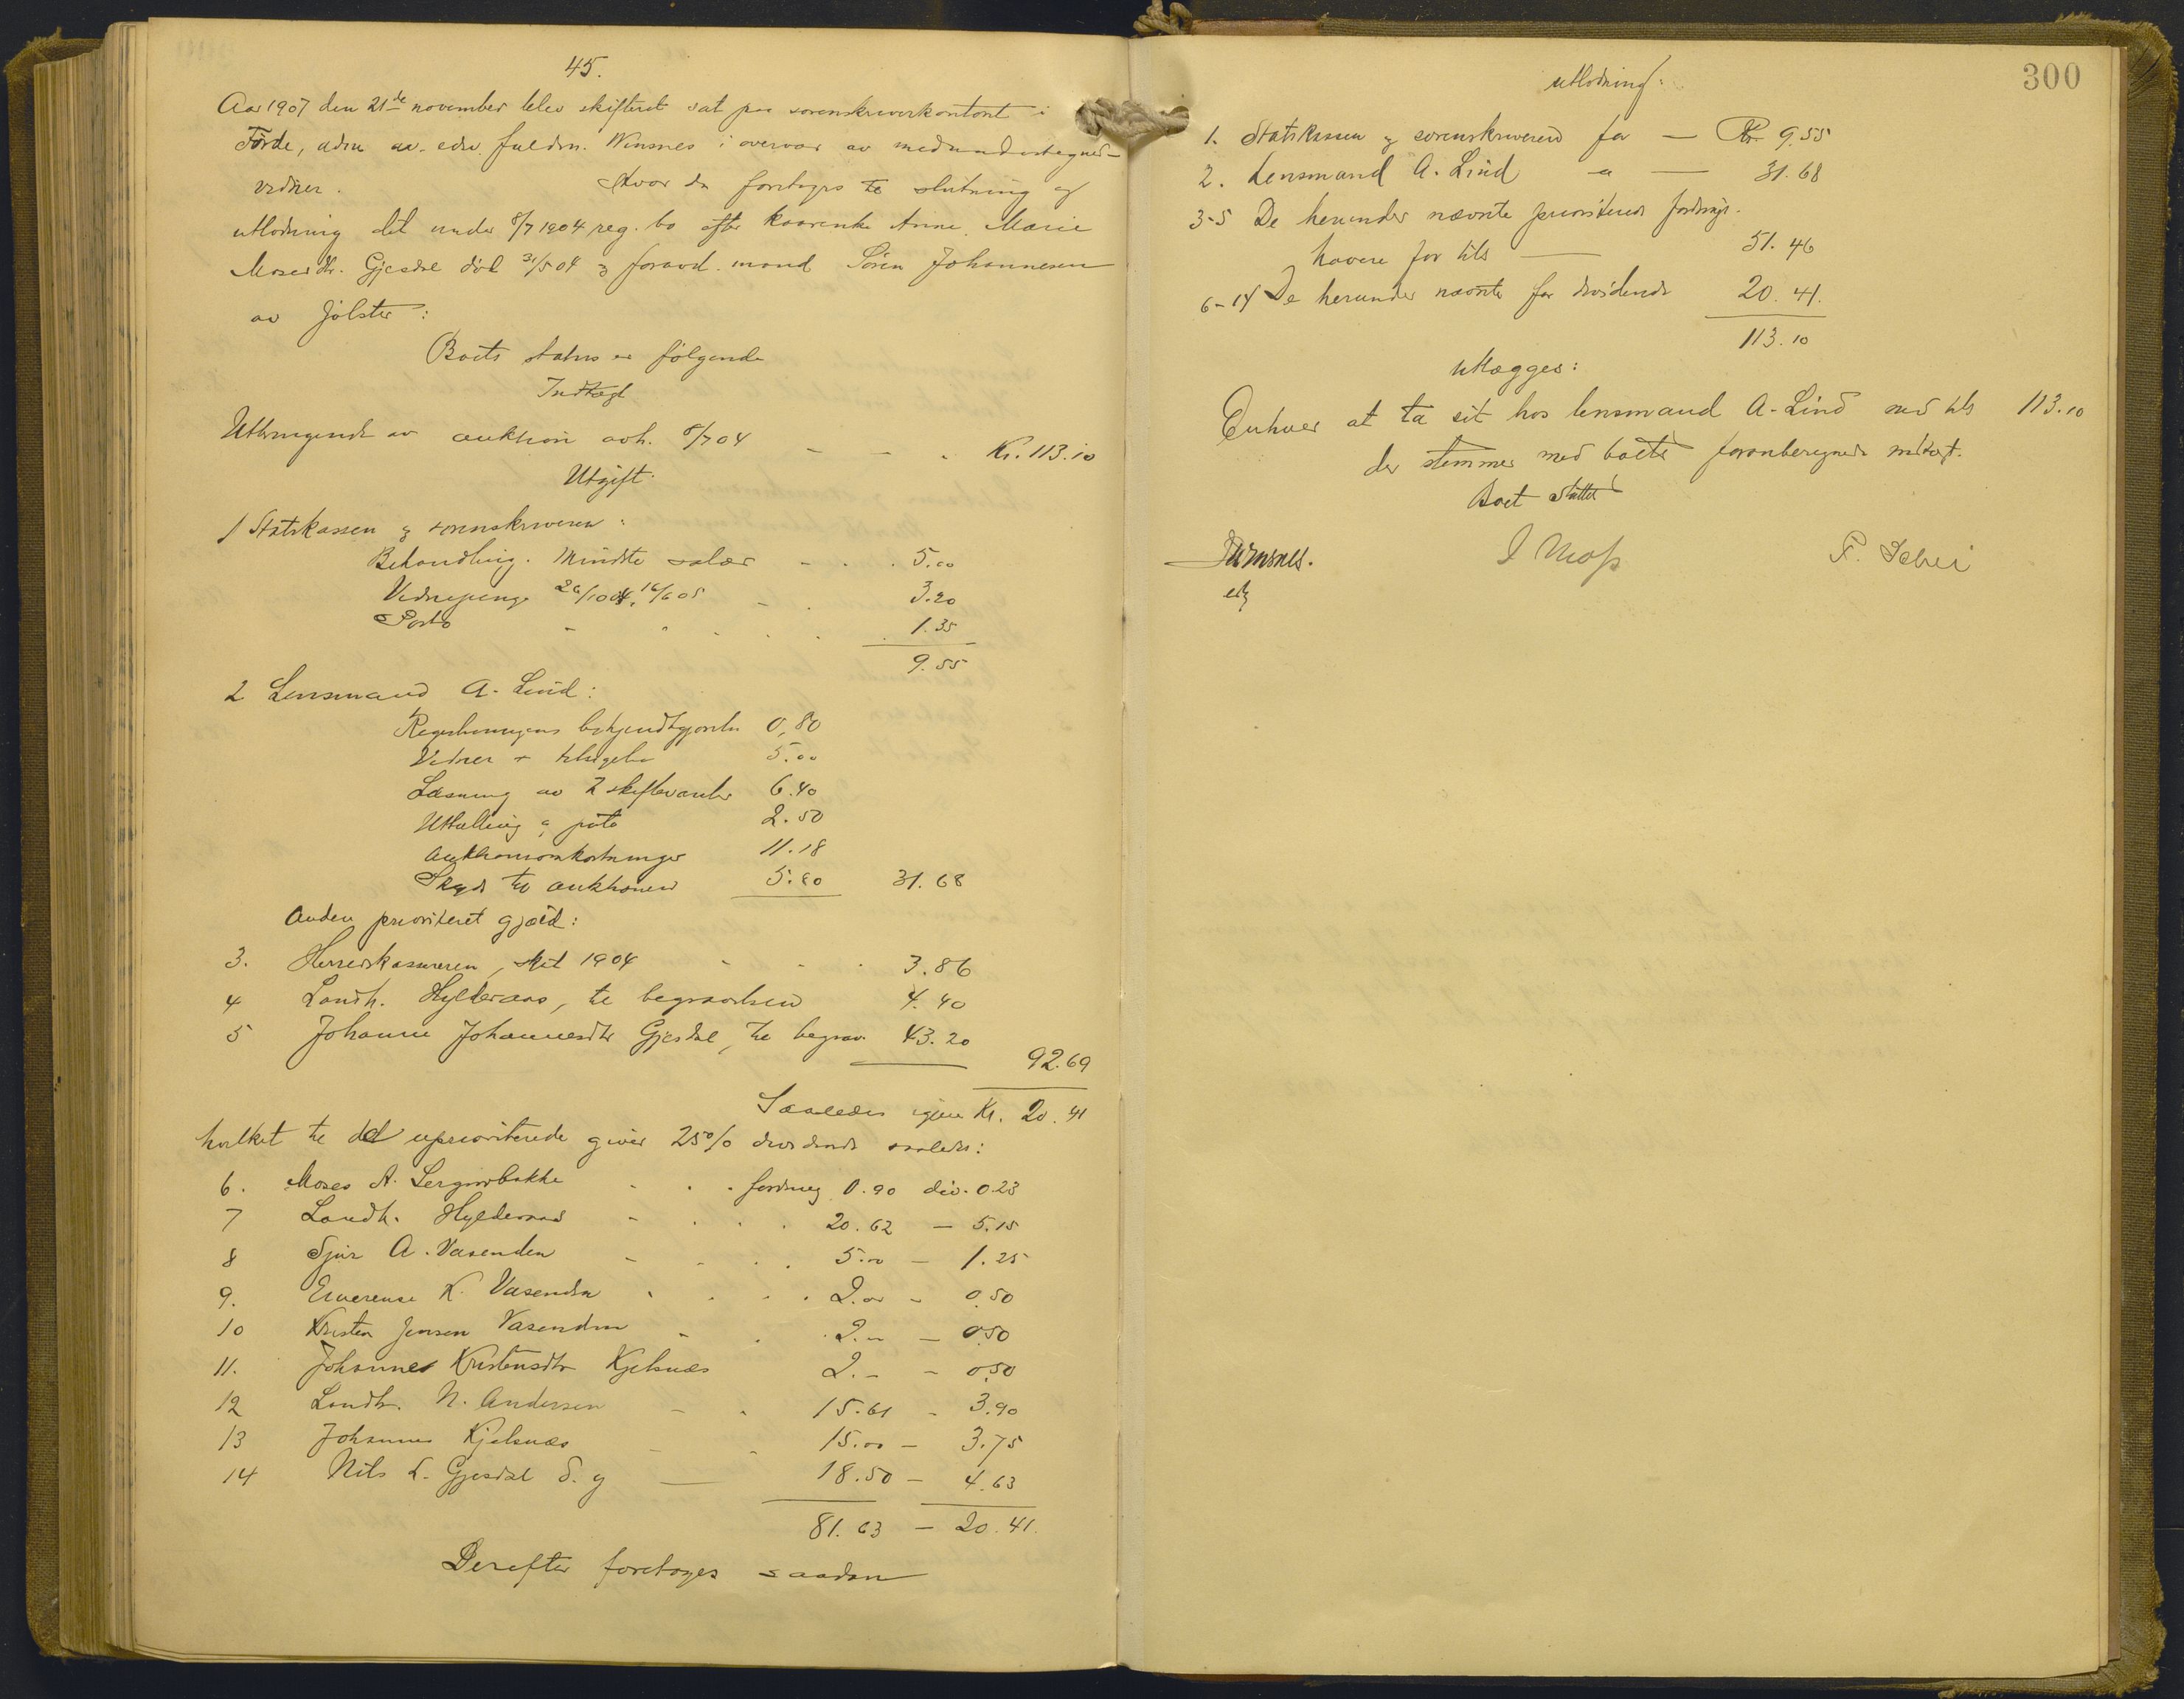 45.
Aar 1907 den 21de november blev skifteret sat paa sorenskriverkontoret i
Førde, adm av edsv. fuldm. Winsnes i overvær av medundertegnede
vidner. Hvor da foretoges til slutning og
utlodning det under 8/7 1904 reg. bo efter kaarenke Anne Marie
Mosesdtr. Gjesdal død 31/5 04 og foravd. mand Søren Johannesen
av Jølster:
Boets status er følgende
Indtægt
Utbringende av auktion avh. 8/7 04 - - - Kr. 113.10
Utgift.
1 Statskassen og sorenskriveren:
Behandling. Mindste salær - . . 5.00
Vidnepenge 26/10 04, 16/6 05 - . 3.20
Porto - . . . . 1.35
9.55
2 Lensmand A. Lind:
Registreringens bekjendtgjørelse 0,80
Vidner + tilsigelse 5.00
Læsning av 2 skiftevarsler 6.40
Utbetaling og porto 2.50
Auktionsomkostninger 11.18
Skyds til auktionen 5.80 31.68
Anden prioritert gjæld:
3. Herredskassereren, skat 1904 - - . 3.86
4 Landh. Hylderaas, til begravelsen 4.40
5 Johanne Johannesdtr Gjesdal, til begrav. 43.20
92.69
Saaledes igjen Kr. 20.41
hvilket til det uprioriterede giver 25% dividende saaledes:
6. Moses A. - . . fordring 0.90 div. 0.23
7 Landh. Hylderaas - . . . 20.62 — 5.15
8 Sjur A. Vasenden - - . . 5.00 — 1.25
9. K. Vasenden . . . . 2.00 - 0.50
10 Kristen Jensen Vasenden - . . 2.00 — 0.50
11. Johanne Kristensdtr Kjelsnæs 2.- - 0.50
12 Landh. N. Andersen - - 15.61 - 3.90
13 Johannes Kjelsnæs - - 15.00 — 3.75
14 Nils L. Gjesdal S. g — 18.50 — 4.63
81.63 — 20.41.
Derefter foretoges saadan
300
utlodning:
1. Statskassen og sorenskriveren faar — Kr. 9.55
2. Lensmand A. Lind " — 31.68
3-5 De herunder nævnte prioriterede fordrings-
havere faar tils — 51.46
6-14 De herunder nævnte faar dividende 20.41.
113.10
utlægges:
Enhver at ta sit hos lensmand A. Lind med tils 113.10
der stemmer med boets foranberegnede indtægt.
Boet sluttet
Winsnes. I Moss F. Schei
edsv